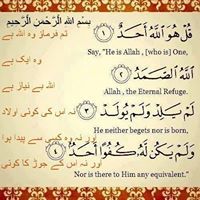 بسم الله الرحمن الرحيم
قُلْ هُوَ اللَّهُ أَحَدٌ ﴿١﴾
تم فرماؤ وہ اللہ ہے
Say, "He is Allah, [who is] One,
وہ ایک ہے
اللَّهُ الصَّمَدُ ﴿٢﴾
اللہ بے نیاز ہے
Allah, the Eternal Refuge.
لَمْ يَلِدْ وَلَمْ يُولَدْ ﴿٣﴾
نہ اس کی کوئی اولاد
He neither begets nor is born,
اور نہ وہ کسی سے پیدا ہوا
وَلَمْ يَكُن لَّهُ كُفُوًا أَحَدٌ ﴿٤﴾
اور نہ اس کے جوڑ کا کوئی
Nor is there to Him any equivalent."